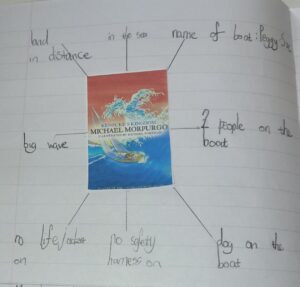 land
in distance
in the sea
name of boat: Peggy Sue
KENSUKE'S KINGDOM
MICHAEL MORPURGO
big wave
2 people on the
boat
no life jacket
on
no safety
harness on
dog on the
boat